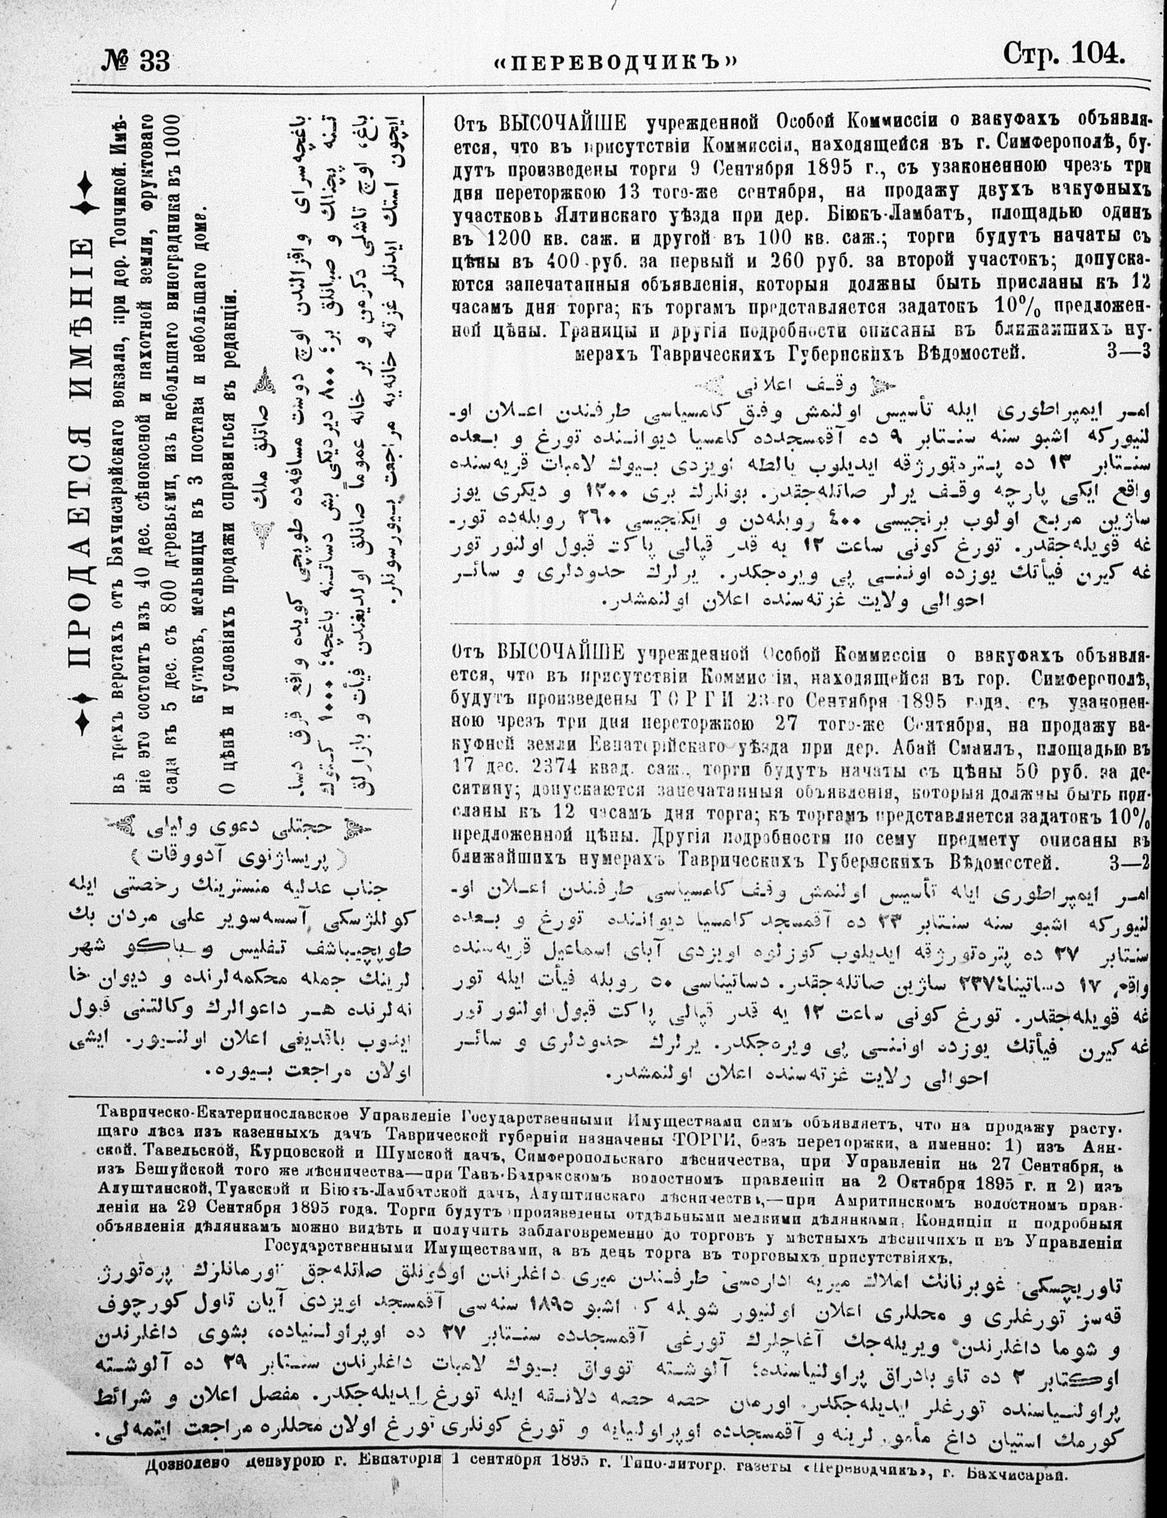 № 33
«ПЕРЕВОДЧИКЪ»
Стр. 104.
ПРОДАЕТСЯ ИМѢНІЕ
въ трехъ верстахъ отъ Бахчисарайскаго вокзала, при дер. Топчикой. Имѣ-
ніе это состоитъ изъ 40 дес. сѣнокосной и пахотной земли, фруктоваго
сада въ 5 дес. съ 800 деревьями, изъ небольшаго виноградника въ 1000
кустовъ, мельницы въ 3 постава и небольшаго дома.
О цѣнѣ и условіяхъ продажи справиться въ редакціи.
صاتلق ملك
باغچه‌سرای واقزالندن اوچ دوست مسافه‌ده طوپچی كویده واقع قرق دسا-
تنه پچنلك و صبانلق یر؛ ٨٠٠ دیردیكی بش دساتنه باغچه؛ ١٠٠٠ كتوك
باغ، اوچ تاشلی دكرمن و بر خانه عموماً صاتلق اولدیغندن فیأت و بازارلق
ایچون استك ایدنلر غزته خانه‌یه مراجعت بیورسونلر.
حجتلی دعوی وكیلی
(پریساژنوی آدووقات)
جناب عدلیه منسترینك رخصتی ایله
كوللژسكی آسسه‌سویر علی مردان بك
طوپچیباشف تفلیس و باكو شهر
لرینك جمله محكمه‌لرنده و دیوان خا
نه‌لرنده هر داعوالرك وكالتنی قبول
ایدوب باقدیغی اعلان اولنیور. ایشی
اولان مراجعت بیوره.
Отъ ВЫСОЧАЙШЕ учрежденной Особой Коммиссіи о вакуфахъ объявля-
ется, что въ присутствіи Коммиссіи, находящейся въ г. Симферополѣ, бу-
дутъ произведены торги 9 Сентября 1895 г., съ узаконенною чрезъ три
дня переторжкою 13 того-же сентября, на продажу двухъ вакуфныхъ
участковъ Ялтинскаго уѣзда при дер. Біюкъ-Ламбатъ, площадью одинъ
въ 1200 кв. саж. и другой въ 100 кв. саж.; торги будутъ начаты съ
цѣны въ 400 руб. за первый и 260 руб. за второй участокъ; допуска-
ются запечатанныя объявленія, которыя должвы быть присланы къ 12
часамъ дня торга; къ торгамъ представляется задатокъ 10% предложен-
ной цѣны. Границы и другія подробности описаны въ ближайшихъ ну-
мерахъ Таврическихъ Губернскихъ Вѣдомостей. 3—3
وقف اعلانی
امر ایمپراطوری ایله تأسیس اولنمش وقف كامسیاسی طرفندن اعلان او-
لنیوركه اشبو سنه سنتابر ٩ ده آقمسجدده كامسیا دیواننده تورغ و بعده
سنتابر ١٣ ده پتره‌تورژقه ایدیلوب یالطه اویزدی بیوك لامبات قریه‌سنده
واقع ایكی پارچه وقف یرلر صاتله‌جقدر. بونلرك بری ١٢٠٠ و دیكری یوز
ساژین مربع اولوب برنجیسی ٤٠٠ روبله‌دن و ایكنجیسی ٢٦٠ روبله‌ده تور-
غه قویله‌جقدر. تورغ كونی ساعت ١٢ یه قدر قپالی پاكت قبول اولنور تور
غه كیرن فیأتك یوزده اوننجی پی ویره‌جكدر. یرلرك حدودلری و سائر
احوالی ولایت غزته‌سنده اعلان اولنمشدر.
Отъ ВЫСОЧАЙШЕ учрежденной Особой Коммиссіи о вакуфахъ объявля-
ется, что въ присутствіи Коммиссіи, находящейся въ гор. Симферополѣ,
будутъ произведены ТОРГИ 23-го Сентября 1895 года, съ узаконен-
ною чрезъ три дня переторжкою 27 того-же Сентября, на продажу ва-
куфной земли Евпаторійскаго уѣзда при дер. Абай Смаилъ, площадью въ
17 дес. 2374 квад. саж., торги будутъ начаты съ цѣны 50 руб. за де-
сятину; допускаются запечатанныя объявленія, которыя должны быть при-
сланы къ 12 часамъ дня торга; къ торгамъ представляется задатокъ 10%
предложенной цѣны. Другія подробности по сему предмету описаны въ
ближайшихъ нумерахъ Таврическихъ Губернскихъ Вѣдомостей. 3—2
امر ایمپراطوری ایله تأسیس اولنمش وقف كامسیاسی طرفندن اعلان او-
لنیوركه اشبو سنه سنتابر ٢٣ ده آقمسجد كامسیا دیواننده تورغ و بعده
سنتابر ٢٧ ده پتره‌تورژقه ایدیلوب كوزلوه اویزدی آبای اسماعیل قریه‌سنده
واقع ١٧ دساتینا ٢٣٧٤ ساژین صاتله‌جقدر. دساتیناسی ٥٠ روبله فیأت ایله تور
غه قویله‌جقدر. تورغ كونی ساعت ١٢ یه قدر قپالی پاكت قبول اولنور تور
غه كیرن فیأتك یوزده اوننجی پی ویره‌جكدر. یرلرك حدودلری و سائر
احوالی ولایت غزته‌سنده اعلان اولنمشدر.
Таврическо-Екатеринославское Управленіе Государственными Имуществами симъ объявляетъ, что на продажу расту-
щаго лѣса изъ казенныхъ дачъ Таврической губерніи назначены ТОРГИ, безъ переторжки, а именно: 1) изъ Аян-
ской, Тавельской, Курцовской и Шумской дачъ, Симферопольскаго лѣсничества, при Управленіи на 27 Сентября, а
изъ Бешуйской того же лѣсничества—при Тавъ-Бадракскомъ волостномъ правленіи на 2 Октября 1895 г. и 2) изъ
Алуштинской, Туакской и Біюкъ-Ламбатской дачъ, Алуштинскаго лѣсничества,—при Алуштинскомъ волостномъ прав-
леніи на 29 Сентября 1895 года. Торги будутъ произведены отдѣльными мелкими дѣлянками. Кондиціи и подробныя
объявленія дѣлянкамъ можно видѣть и получить заблаговременно до торговъ у мѣстныхъ лѣсничихъ и въ Управленіи
Государственными Имуществами, а въ день торга въ торговыхъ присутствіяхъ.
تاوریچسكی غوبرنانك املاك میریه اداره‌سی طرفندن میری داغلرندن اودونلق صاتله‌جق اورمانلرك پره‌تورژ
قه‌سز تورغلری و محللری اعلان اولنیور شویله كه اشبو ١٨٩٥ سنه‌سی آقمسجد اویزدی آیان تاول كورچوف
و شوما داغلرندن ویریله‌جك آغاچلرك تورغی آقمسجدده سنتابر ٢٧ ده اوپراولنیاده، بشوی داغلرندن
اوكتابر ٢ ده تاو بادراق پراولنیاسنده؛ آلوشته توواق بیوك لامبات داغلرندن سنتابر ٢٩ ده آلوشته
پراولنیاسنده تورغلر ایدیله‌جكدر. اورمان حصه حصه دلانقه ایله تورغ ایدیله‌جكدر. مفصل اعلان و شرائط
كورمك استیان داغ مأمورلرینه و آقمسجدده اوپراولنیایه و تورغ كونلری تورغ اولان محللره مراجعت ایتمه‌لی.
Дозволено цензурою г. Евпаторія 1 сентября 1895 г. Типо-литогр. газеты «Переводчикъ», г. Бахчисарай.